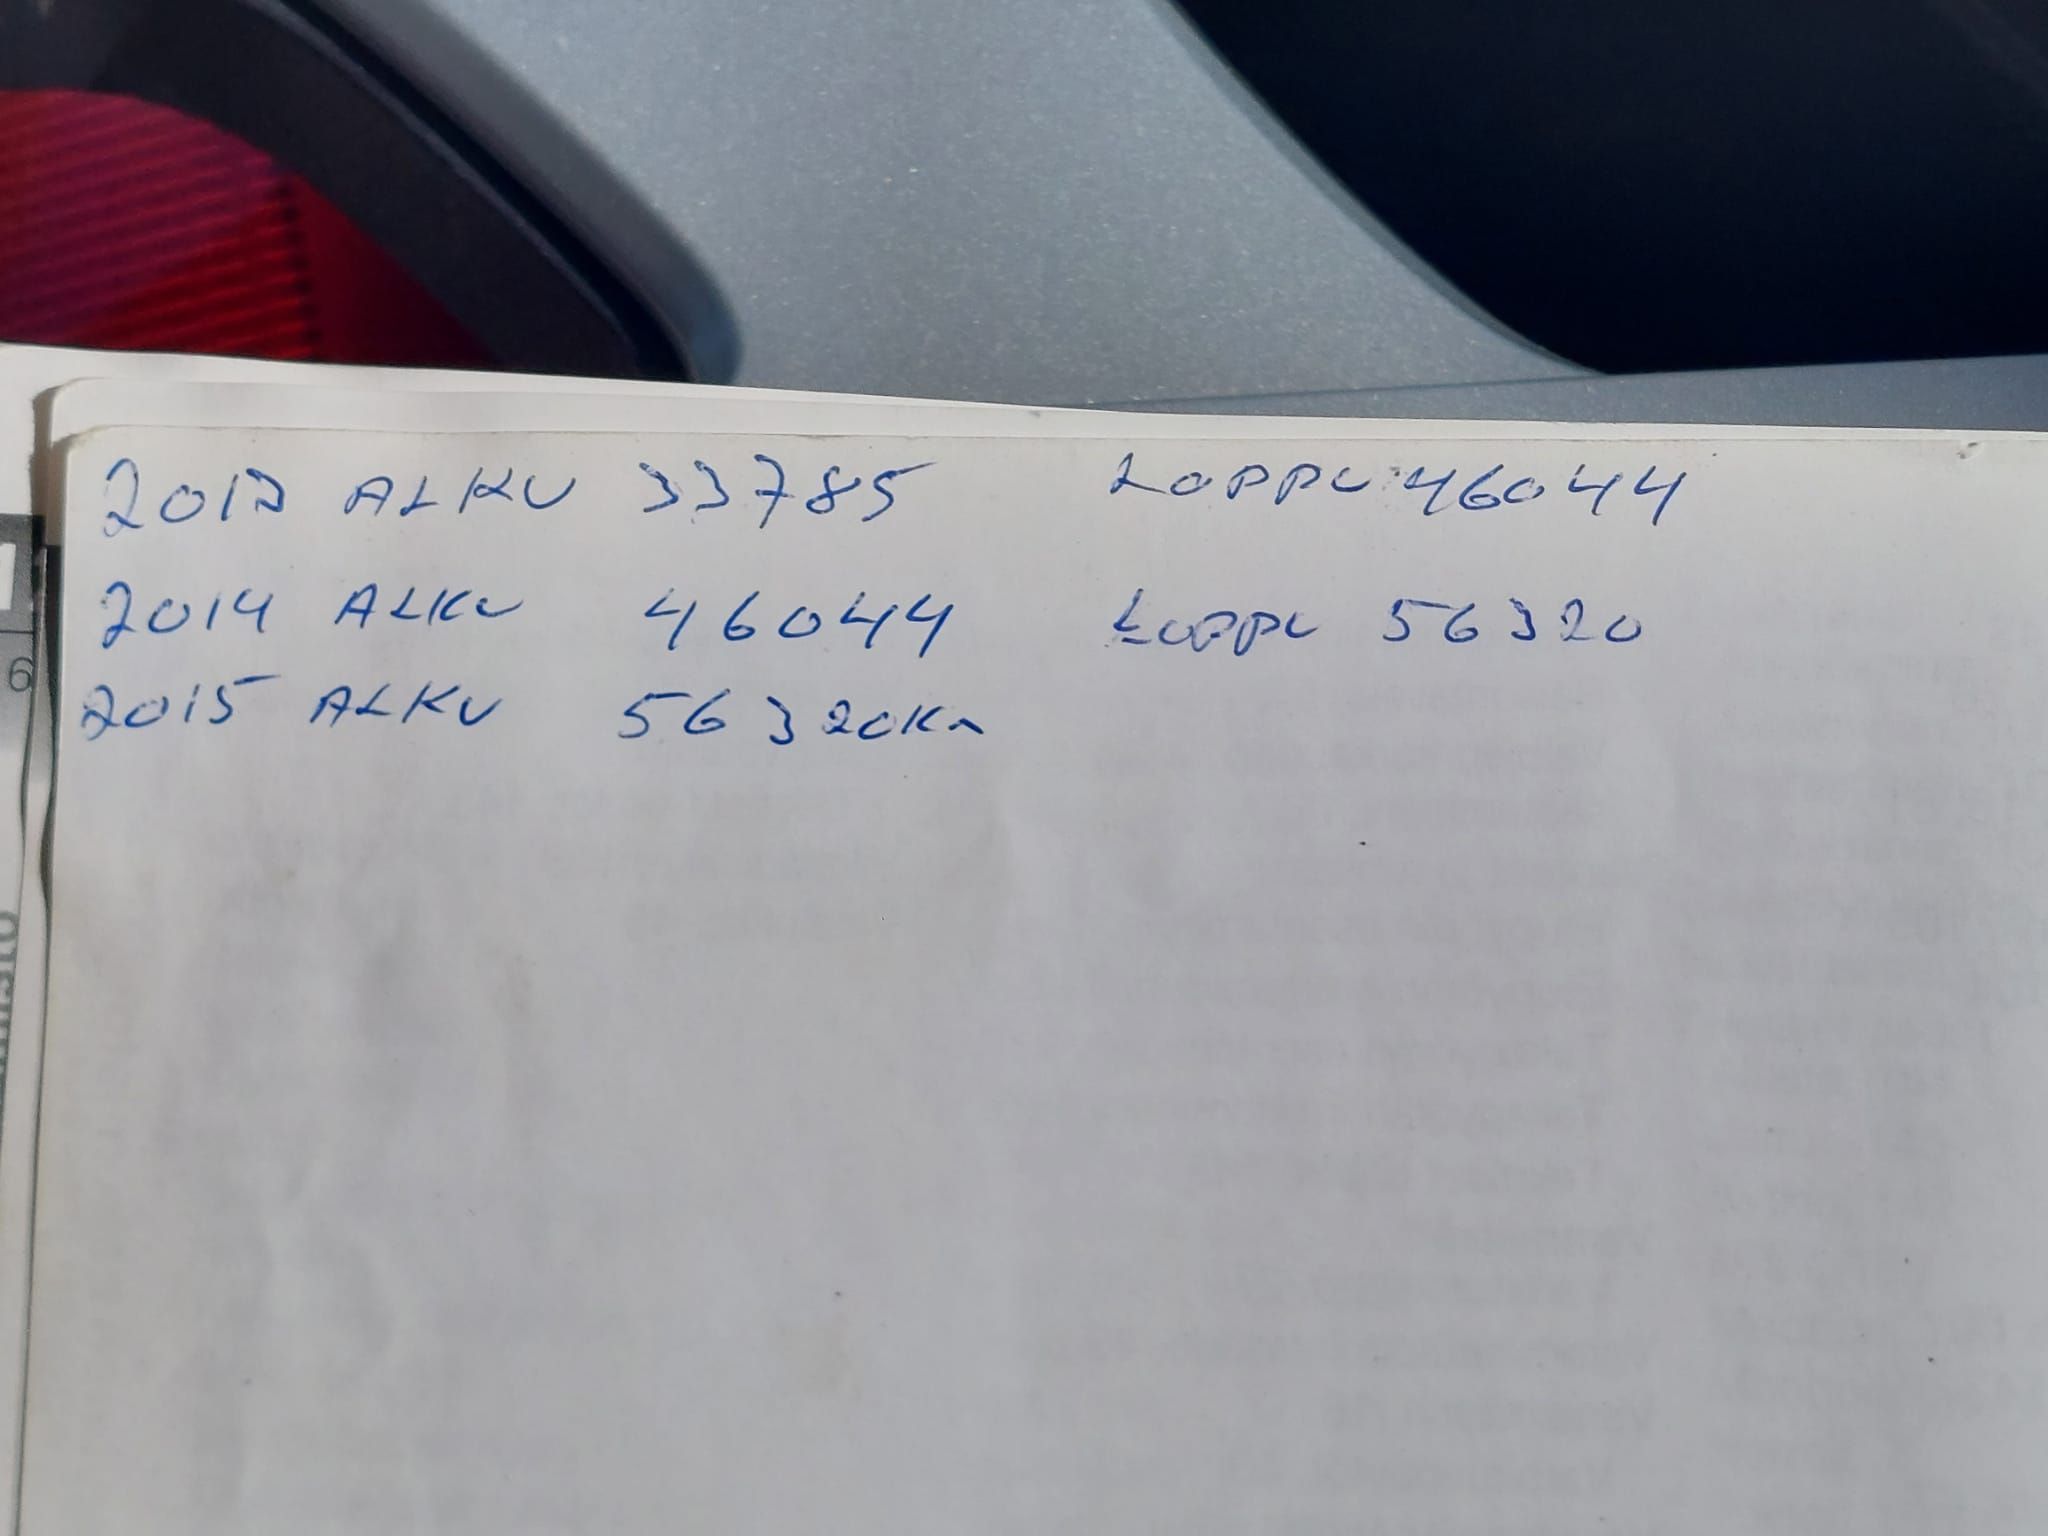 2013 ALKU 33785 LOPPU 46044
2014 ALKU 46044 LOPPU 56320
2015 ALKU 56320 Km
6